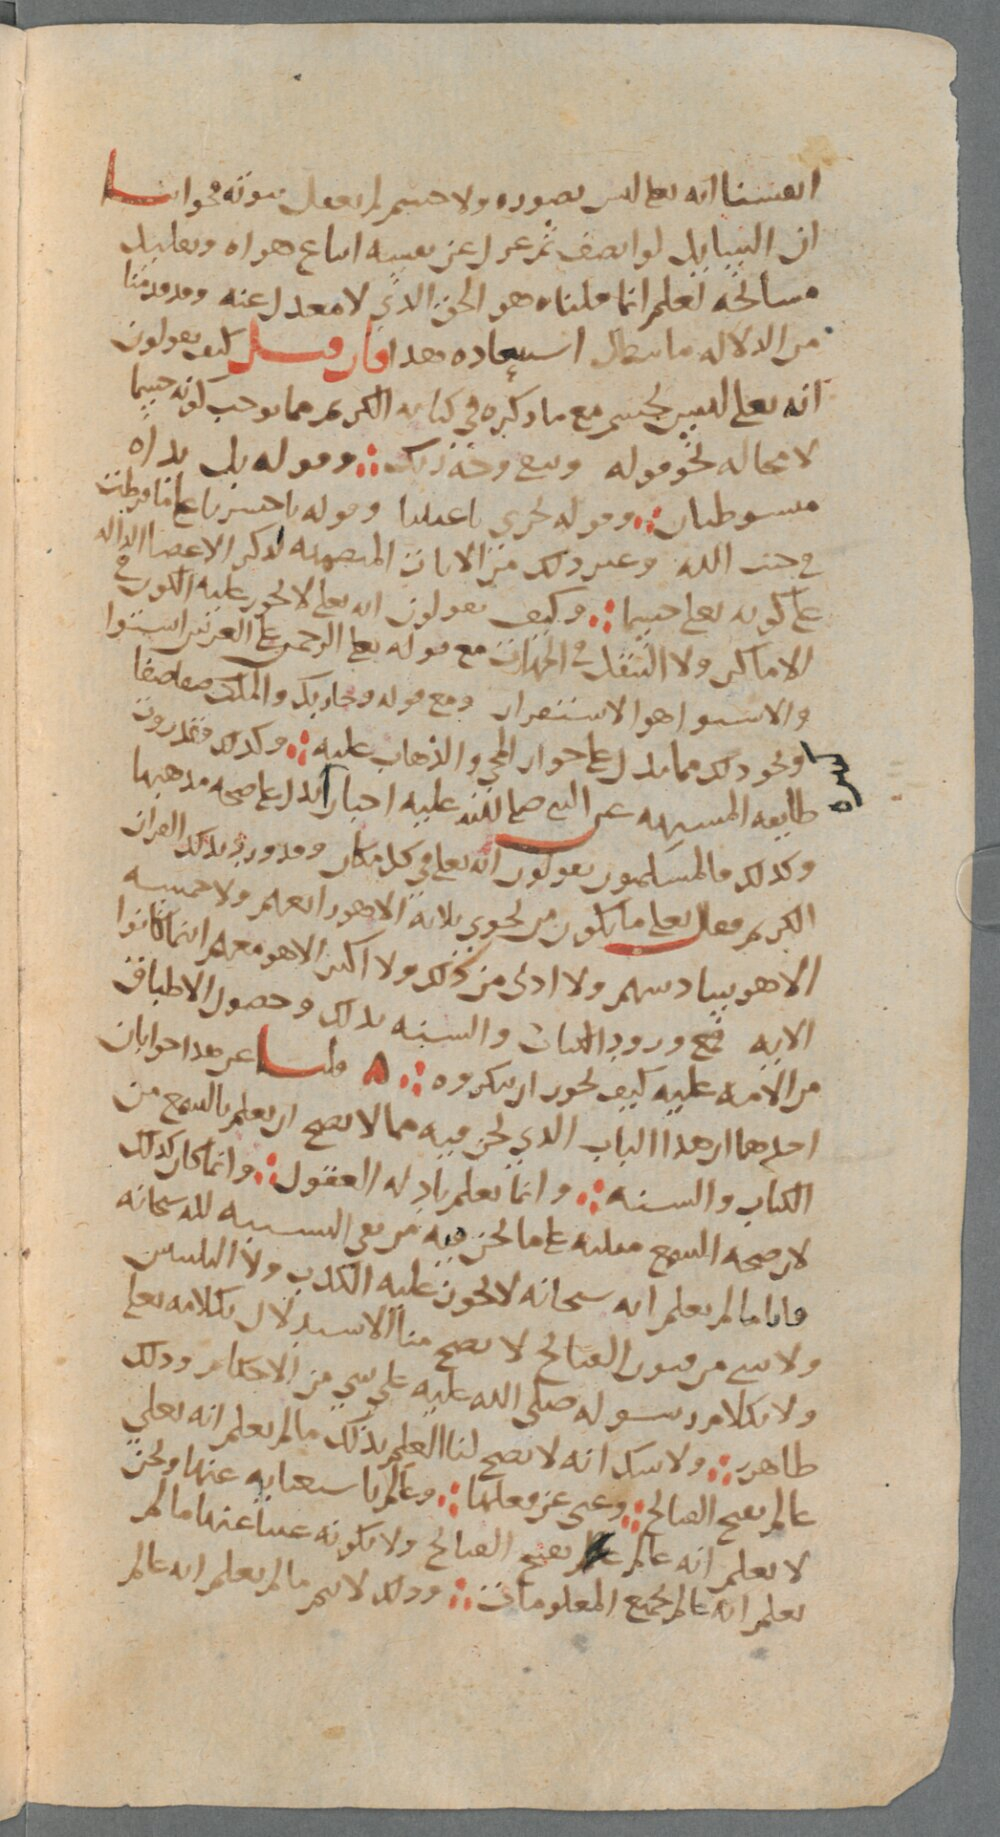 انفسنا انه تعالى ليس بصورة ولا جسم لم يعقل ثبوته فجوابنا
ان السايل لو انصف ثم عزل عن نفسه اتباع هواه وتقليد
مشايخه لعلم ان ما قلناه هو الحق الذي لا معدل عنه وقد قدمنا
من الدلالة ما يبطل استبعاده هذا فان قيل كيف تقولون
انه تعالى ليس بجسم مع ما ذكره في كتابه الكريم مما يوجب كونه جسما
لا محالة نحو قوله ويبقى وجه ربك وقوله بل يداه
مبسوطتان وقوله تجري باعيننا وقوله يا حسرتا على ما فرطت
في جنب الله وغير ذلك من الايات المتضمنة لذكر الاعضا الدالة
على كونه تعالى جسما وكيف تقولون انه تعالى لا يجوز عليه الكون في
الاماكن ولا التنقل في الجهات مع قوله تعالى الرحمن على العرش استوا
والاستوا هو الاستقرار ومع قوله وجا ربك والملك صفا صفا
ونحو ذلك مما يدل على جواز المجي والذهاب عليه وكذلك فقد روت
طايفة المشبهة عن النبي صلى الله عليه اخبارا تدل على صحة مذهبها
وكذلك فالمسلمون يقولون انه تعالى في كل مكان وقد ورد بذلك القران
الكريم فقال تعالى ما يكون من نجوى ثلاثة الا هو رابعهم ولا خمسة
الا هو سادسهم ولا ادنى من ذلك ولا اكثر الا هو معهم اينما كانوا
الاية فمع ورود الكتاب والسنة بذلك وحصول الاطباق
من الامة عليه كيف يجوز ان ينكروه قلنا عن هذا جوابان
احدهما ان هذا الباب الذي نحن فيه مما لا يصح ان يعلم بالسمع من
الكتاب والسنة وانما يعلم بادلة العقول وانما كان كذلك
لان صحة السمع مبنية على ما نحن فيه من نفي التشبيه لله سبحانه
فانا ما لم نعلم انه سبحانه لا يجوز عليه الكذب ولا التلبيس
ولا شي من فنون القبائح لا يصح منا الاستدلال بكلامه تعالى
ولا بكلام رسوله صلى الله عليه على شي من الاحكام وذلك
ظاهر ولا شك انه لا يصح لنا العلم بذلك ما لم نعلم انه تعالى
عالم بقبح القبائح وغني عن فعلها وعالم باستغنايه عنها ونحن
لا نعلم انه عالم بقبح القبائح ولا بكونه غنيا عنها ما لم
نعلم انه عالم بجميع المعلومات وذلك لا يتم ما لم نعلم انه عالم